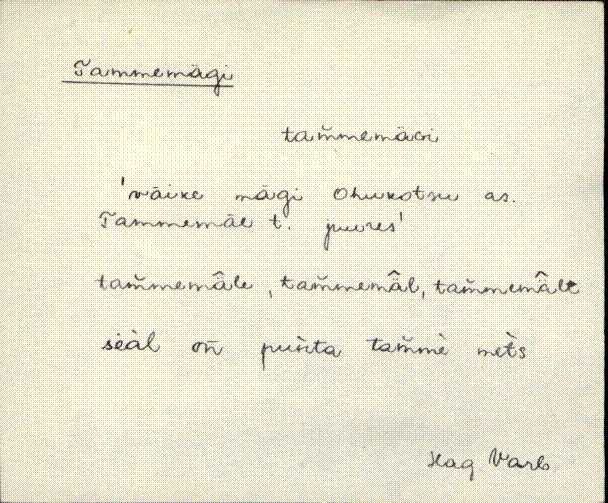 Tammemägi
tam̆memäGi
'väike mägi Ohukotsu as.
Tammemäe t. juures'
tam̆memä̂le, tam̆memä̂l, tam̆memä̂lt
mèt̀s
Hag Varb